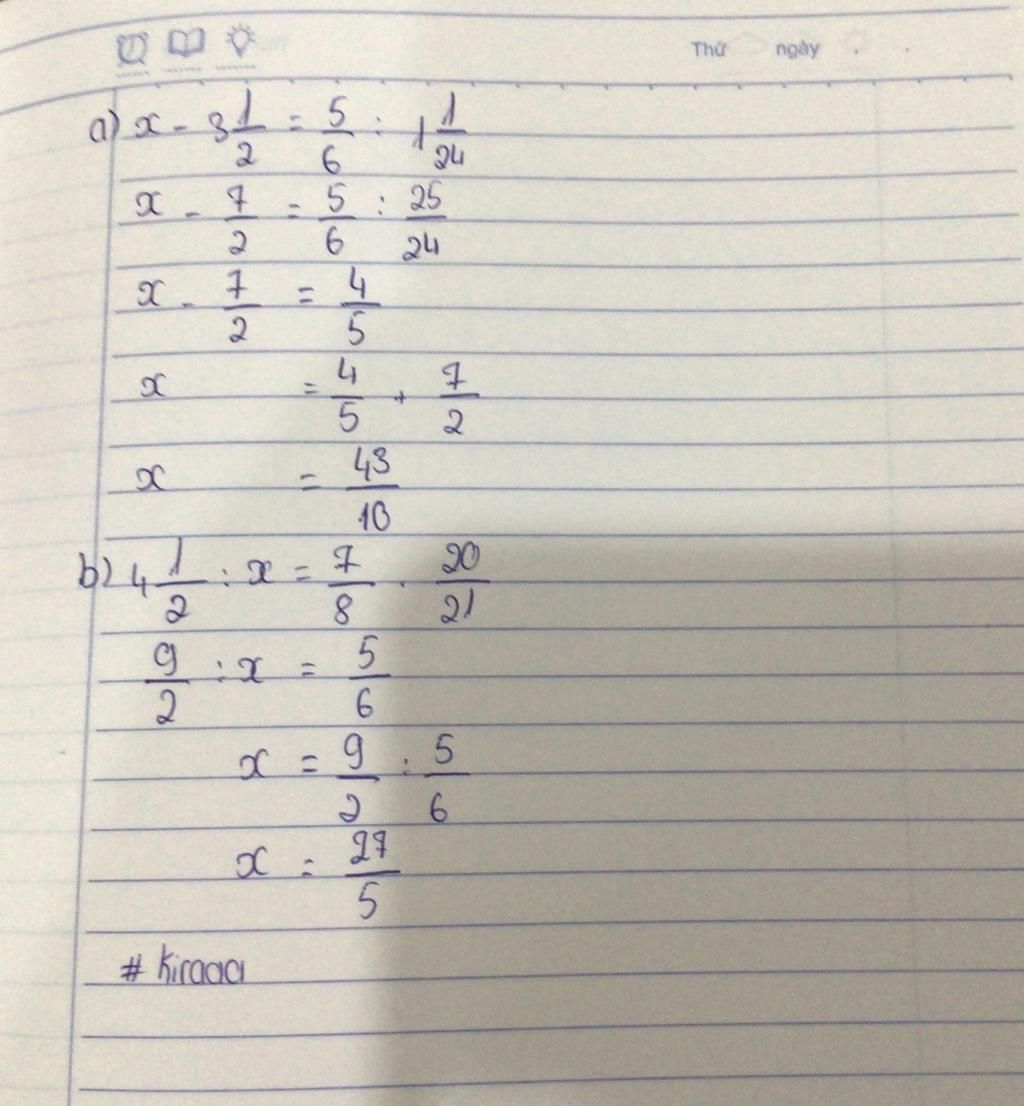 Thứ ngày
a) x - 3 1/2 = 5/6 : 1 1/24
x - 7/2 = 5/6 : 25/24
x - 7/2 = 4/5
x = 4/5 + 7/2
x = 43/10
b) 4 1/2 : x = 7/8 . 20/21
9/2 : x = 5/6
x = 9/2 : 5/6
x = 27/5
# Kiraaa